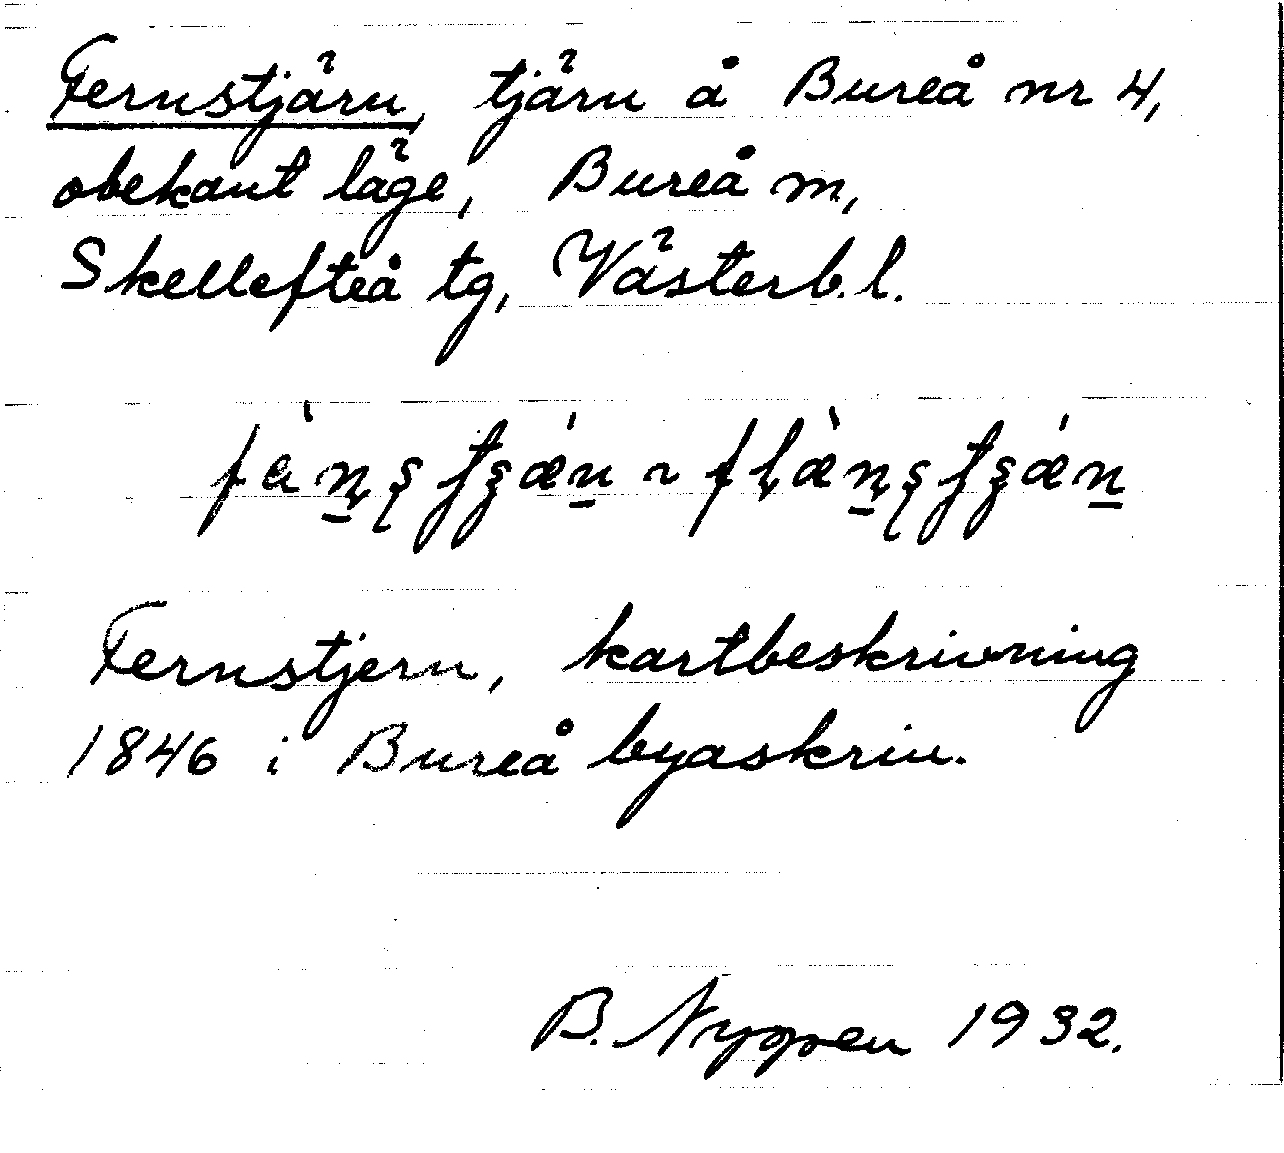 Fernstjärn, tjärn å Bureå nr 4,
obekant läge, Bureå m,
Skellefteå tg, Västerb. l.
Fernstjern, kartbeskrivning
1846 i Bureå byaskrin.
B. Nygren 1932.